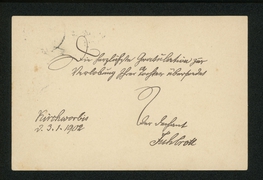 Die herzlichste Gratulation zur
Verlobung Ihrer Tochter übersendet
Der Dechant
Kirchworbis
d. 3.1.1902